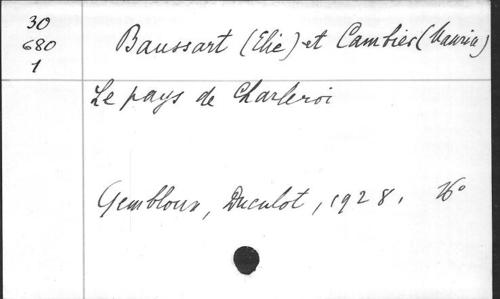 30
680
1
Baussart (Elie) et Cambier (Maurice)
Le pays de Charleroi
Gembloux, Duculot, 1928. 16°